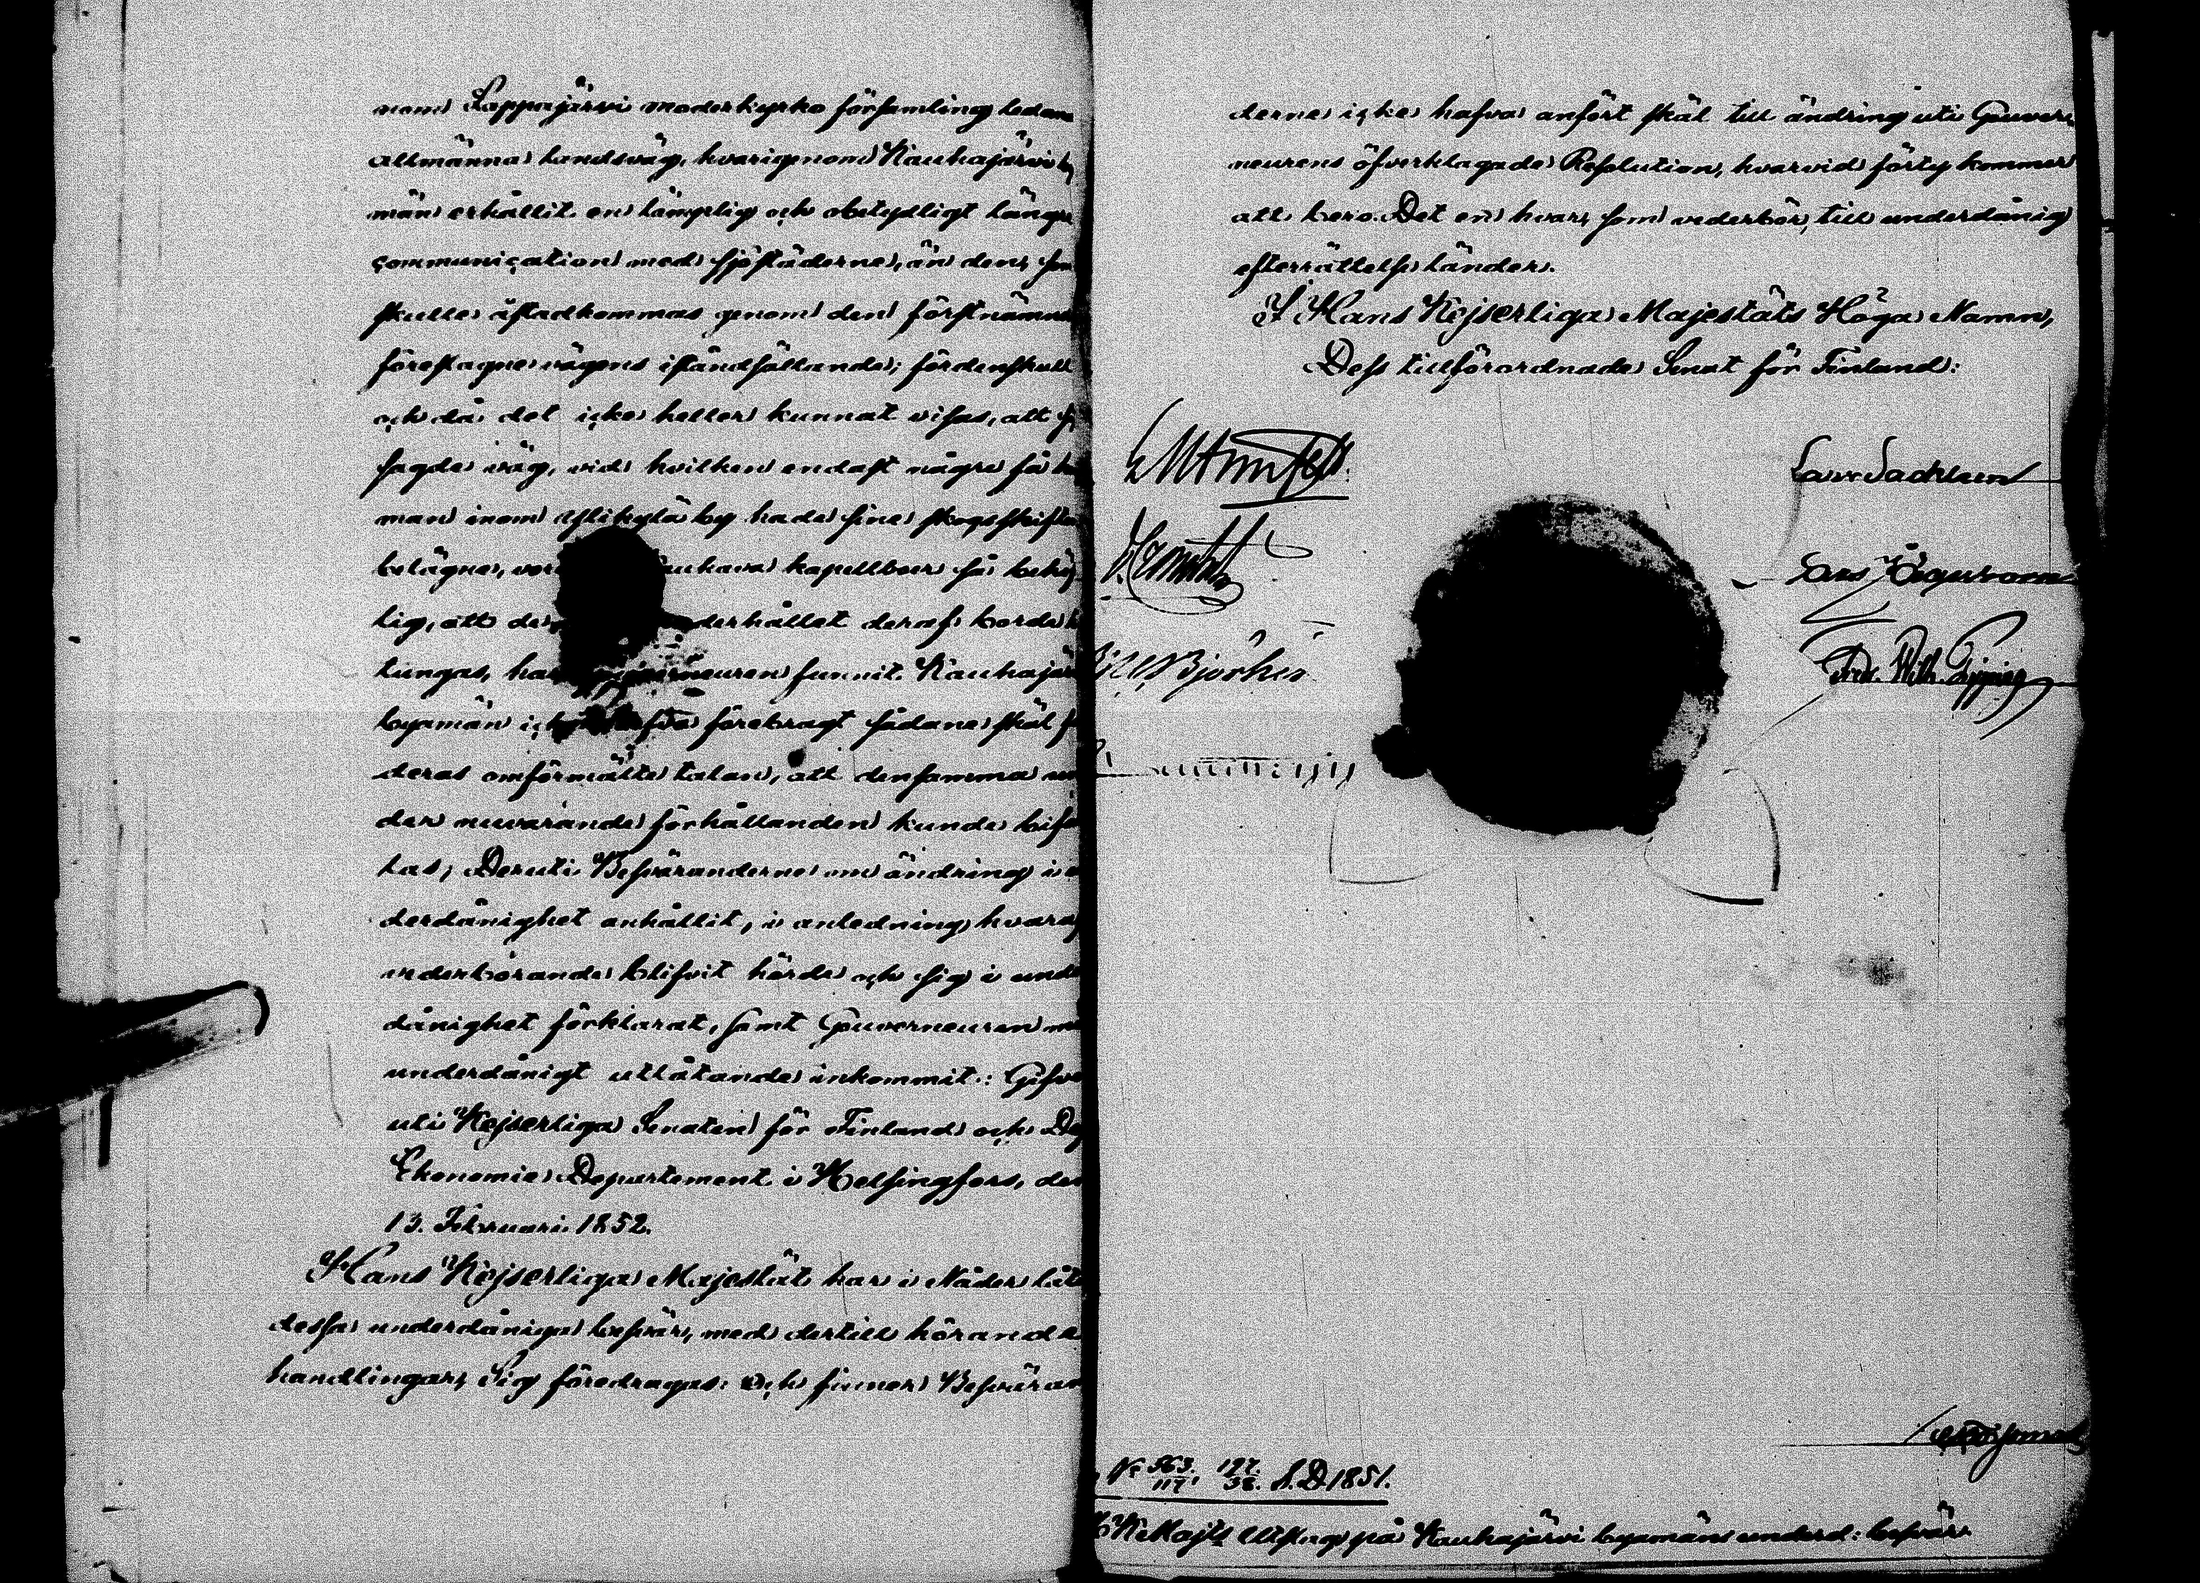 nom Lappajärvi moderkyrko församling ledan
allmänna landsväg, hvarigenom Kauhajärvi
män erhållit en lämplig och obetydligt längre
communication med sjöstäderne, än den, som
skulle åstadkommas genom den förstnämn
föreslagne vägens iståndsättande; fördenskull
och då det icke heller kunnat visas, att
sagde väg, vid hvilken endast någre få
man inom by hade sine skogsskiften
belägne, vore kapellboer så behöf
lig, att derhållet deraf borde
tungas, har funnit Kauhajär
byamän förebragt sådane skäl
deras omförmälte talan, att densamma un
der nuvarande förhållanden kunde bifal
las; Deruti Besväranderne om ändring i un
derdånighet anhållit, i anledning hvaraf
vederbörande blifvit hörde och sig i under
dånighet förklarat, samt Gouverneuren med
underdånigt utlåtande inkommit: Gifven
uti Kejserliga Senaten för Finland och Dess
Ekonomie Departement i Helsingfors, den
13. Februari 1852.
Hans Kejserliga Majestät har i Nåder låtit
dessa underdåniga besvär, med dertill hörande
handlingar, Sig föredragas: och finner Besväran
derne icke hafva anfört skäl till ändring uti Gouver
neurens öfverklagade Resolution, hvarvid förty kommer
att bero. Det en hvar, som vederbör, till underdånig
efterrättelse länder.
I Hans Kejserliga Majestäts Höga Namn,
Dess tillförordnade Senat för Finland:
Lars Sackleen
Björksten
Fredr. Wilh. Pipping
N:o 563/117. 127/38. A.D. 1851.
K Majts Utslag på Kauhajärvi byamäns underd: besvär